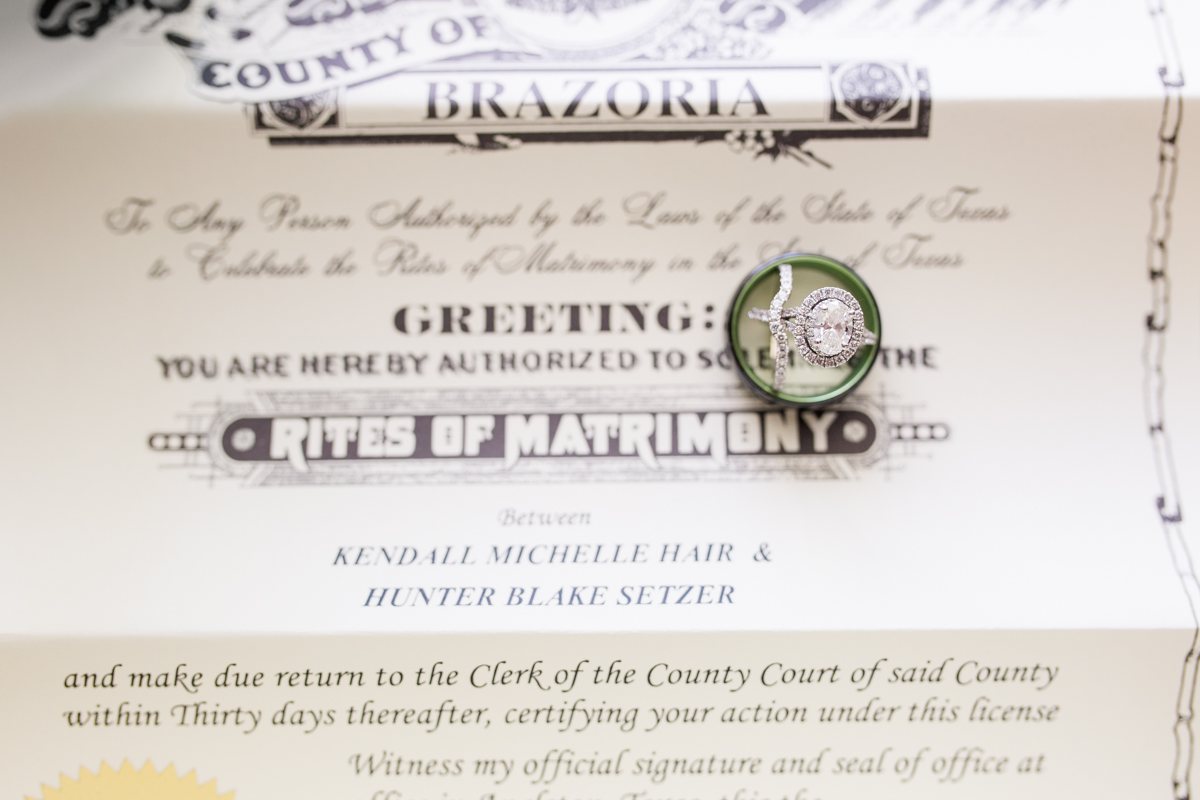 COUNTY OF
BRAZORIA
To Any Person Authorized by the Laws of the State of Texas
to Celebrate the Rites of Matrimony in the State of Texas
GREETING:
YOU ARE HEREBY AUTHORIZED TO SOLEMNIZE THE
RITES OF MATRIMONY
Between
KENDALL MICHELLE HAIR &
HUNTER BLAKE SETZER
and make due return to the Clerk of the County Court of said County
within Thirty days thereafter, certifying your action under this license
Witness my official signature and seal of office at
office in Angleton, Texas, this the